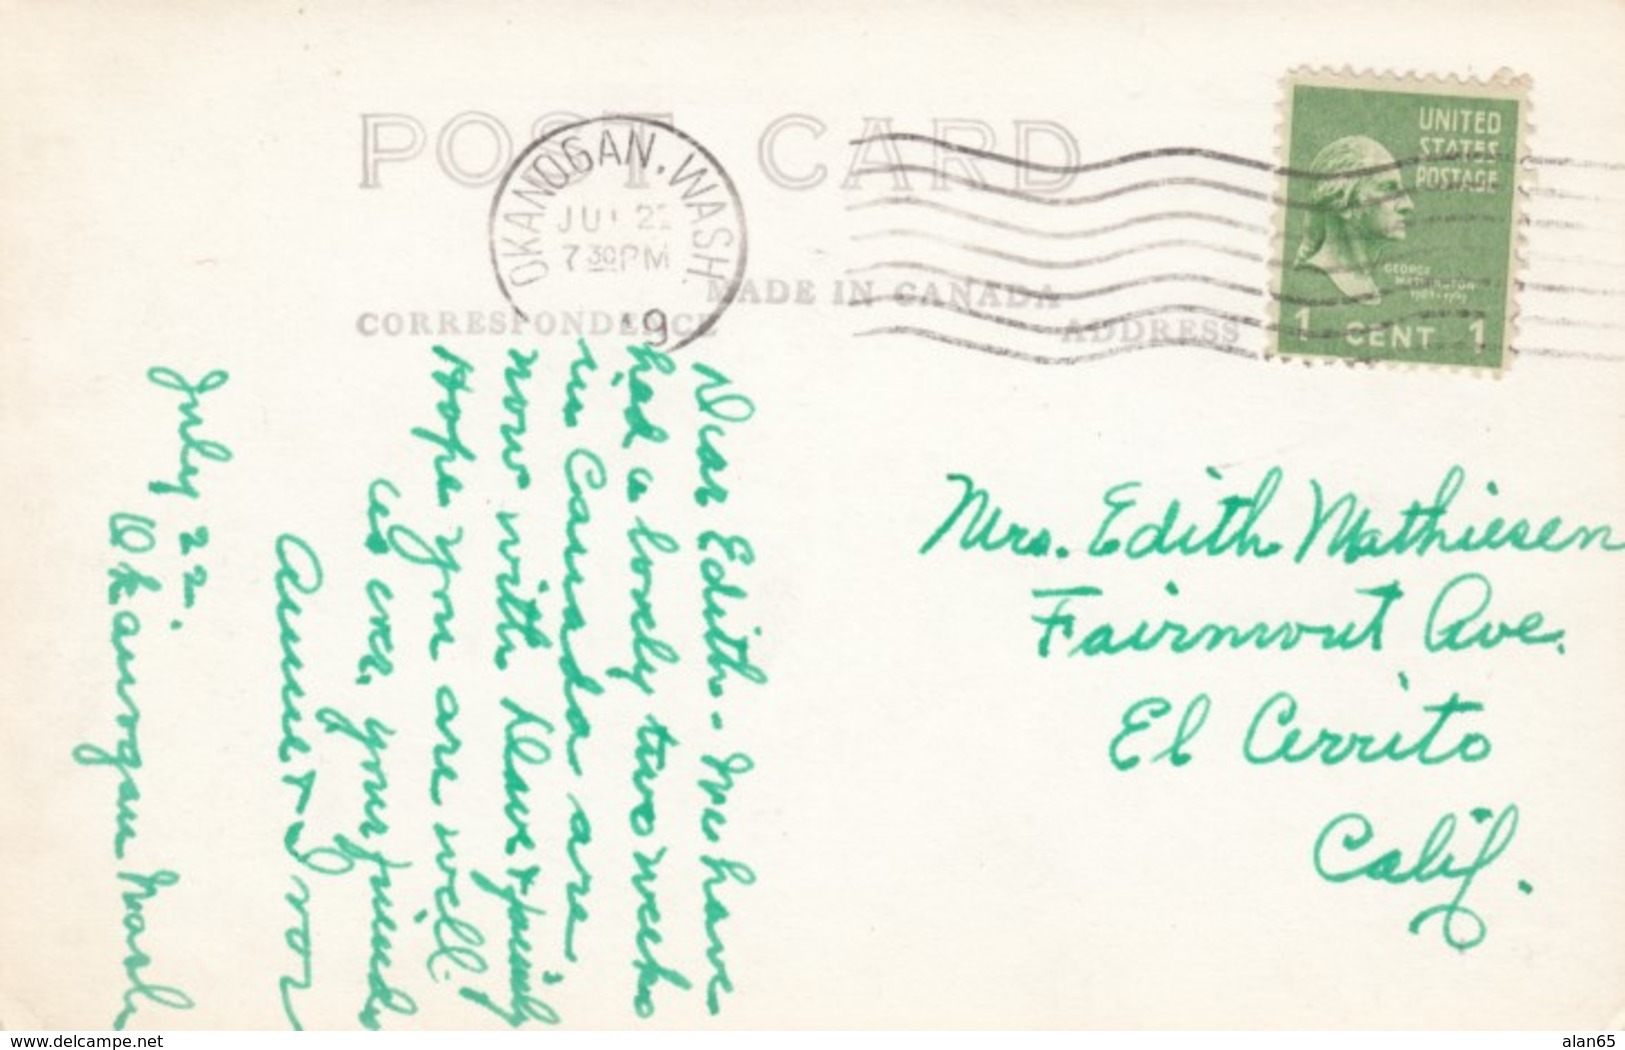 POST CARD
OKANOGAN, WASH.
JUL 22
7 30 PM
MADE IN CANADA
CORRESPONDENCE
ADDRESS
UNITED
STATES
POSTAGE
GEORGE
WASHINGTON
1 CENT 1
Mrs. Edith Mathiesen
Fairmount Ave.
El Cerrito
Calif.
Dear Edith - We have
had a lovely two weeks
in Canada are
now with Dave & family
Hope you are well.
As ever, your friends
Annie & Ivor
July 22.
Okanogan Wash
www.delcampe.net
alan65